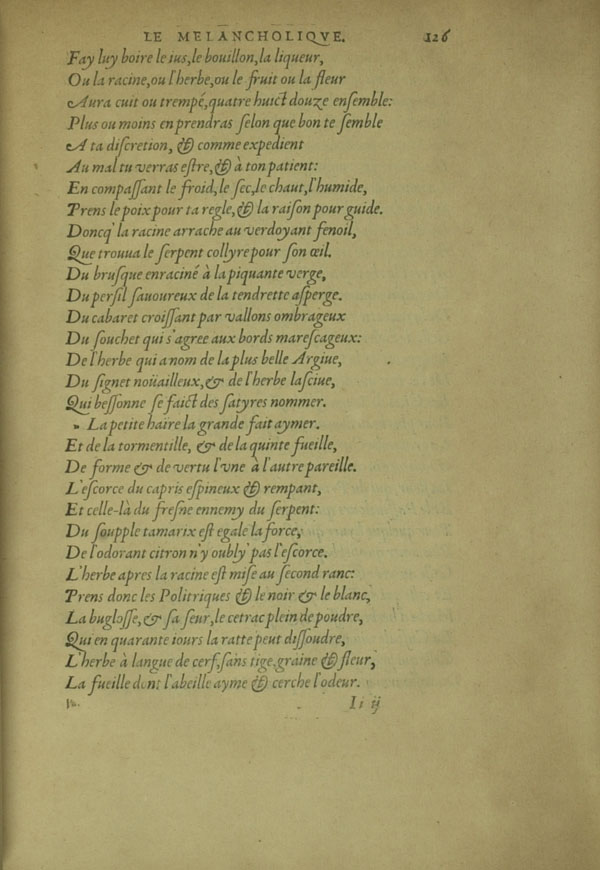 LE MELANCHOLIQVE. 126
Fay luy boire le ius, le bouillon, la liqueur,
Ou la racine, ou l'herbe, ou le fruit ou la fleur
Aura cuit ou trempé, quatre huict douze enſemble:
Plus ou moins en prendras ſelon que bon te ſemble
A ta diſcretion, & comme expedient
Au mal tu verras eſtre, & à ton patient:
En compaſſant le froid, le ſec, le chaut, l'humide,
Prens le poix pour ta regle, & la raiſon pour guide.
Doncq' la racine arrache au verdoyant fenoil,
Que trouua le ſerpent collyre pour ſon œil.
Du bruſque enraciné à la piquante verge,
Du perſil ſauoureux de la tendrette aſperge.
Du cabaret croiſſant par vallons ombrageux
Du ſouchet qui s'agree aux bords mareſcageux:
De l'herbe qui a nom de la plus belle Argiue,
Du ſignet noüailleux, & de l'herbe laſciue,
Qui beſſonne ſe faict des ſatyres nommer.
» La petite haire la grande fait aymer.
Et de la tormentille, & de la quinte fueille,
De forme & de vertu l'vne à l'autre pareille.
L'eſcorce du capris eſpineux & rempant,
Et celle-là du freſne ennemy du ſerpent:
Du ſoupple tamarix eſt egale la force,
De l'odorant citron n'y oubly' pas l'eſcorce.
L'herbe apres la racine eſt miſe au ſecond ranc:
Prens donc les Politriques & le noir & le blanc,
La bugloſſe, & ſa ſeur, le cetrac plein de poudre,
Qui en quarante iours la ratte peut diſſoudre,
L'herbe à langue de cerf, ſans tige, graine & fleur,
La fueille dont l'abeille ayme & cerche l'odeur.
Ii ij